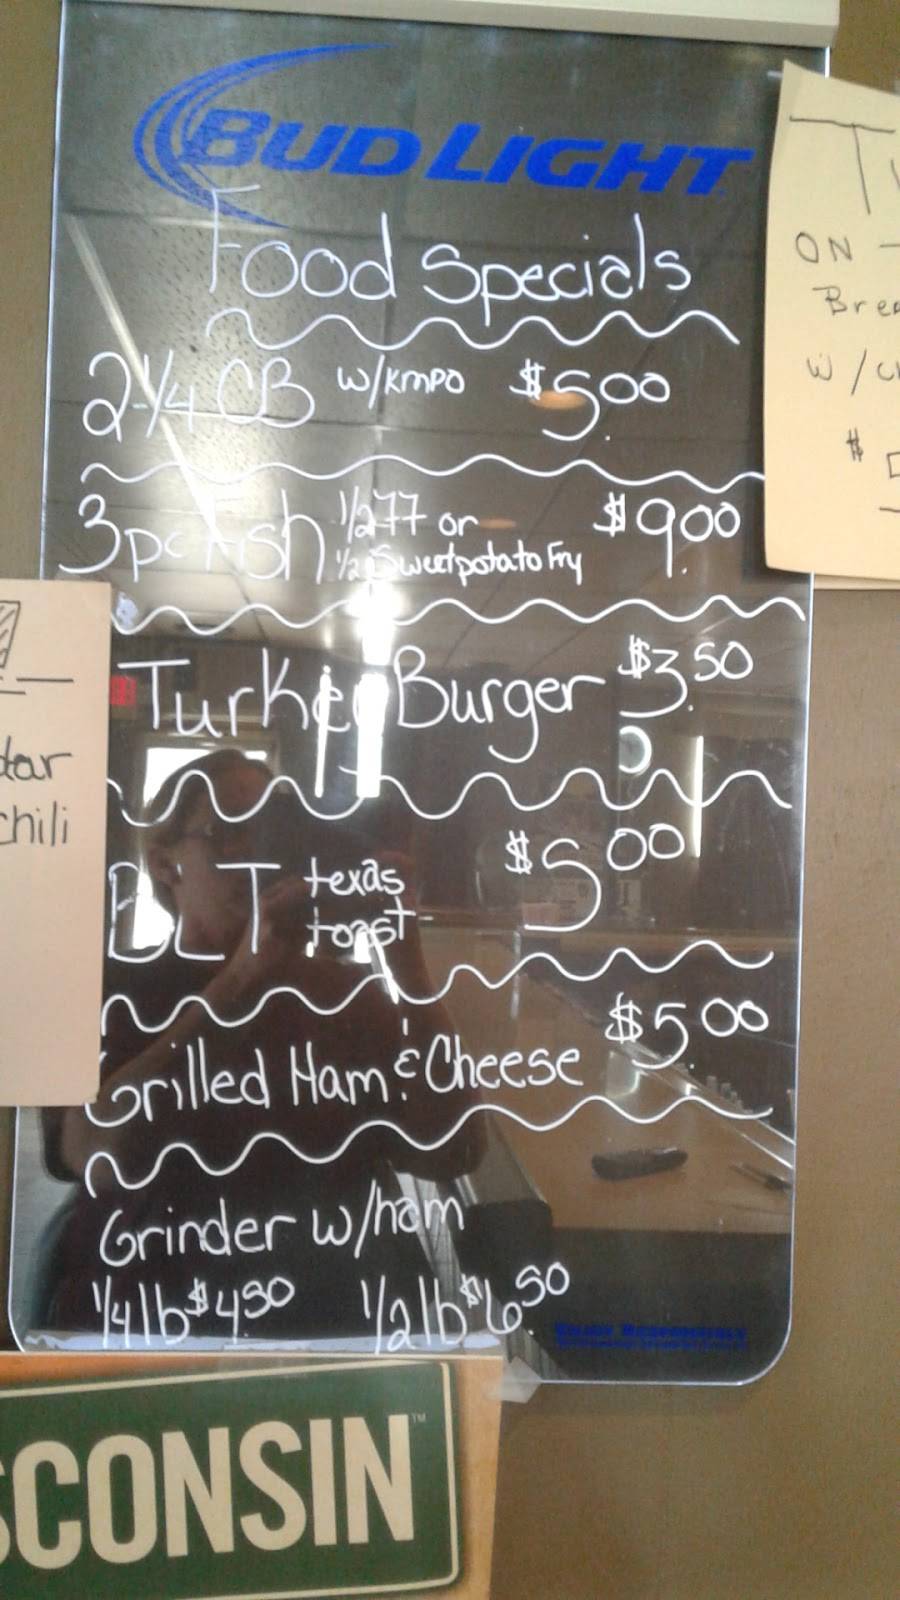 BUD LIGHT
Food Specials
2 1/4 CB w/KMPO $5.00
3pc Fish 1/2 TT or $9.00
1/2 Sweetpotato Fry
Turkey Burger $3.50
BLT texas toast $5.00
Grilled Ham & Cheese $5.00
Grinder w/ham
1/4 lb $4.50 1/2 lb $6.50
ENJOY RESPONSIBLY
ON
W/
$
chili
CONSIN™